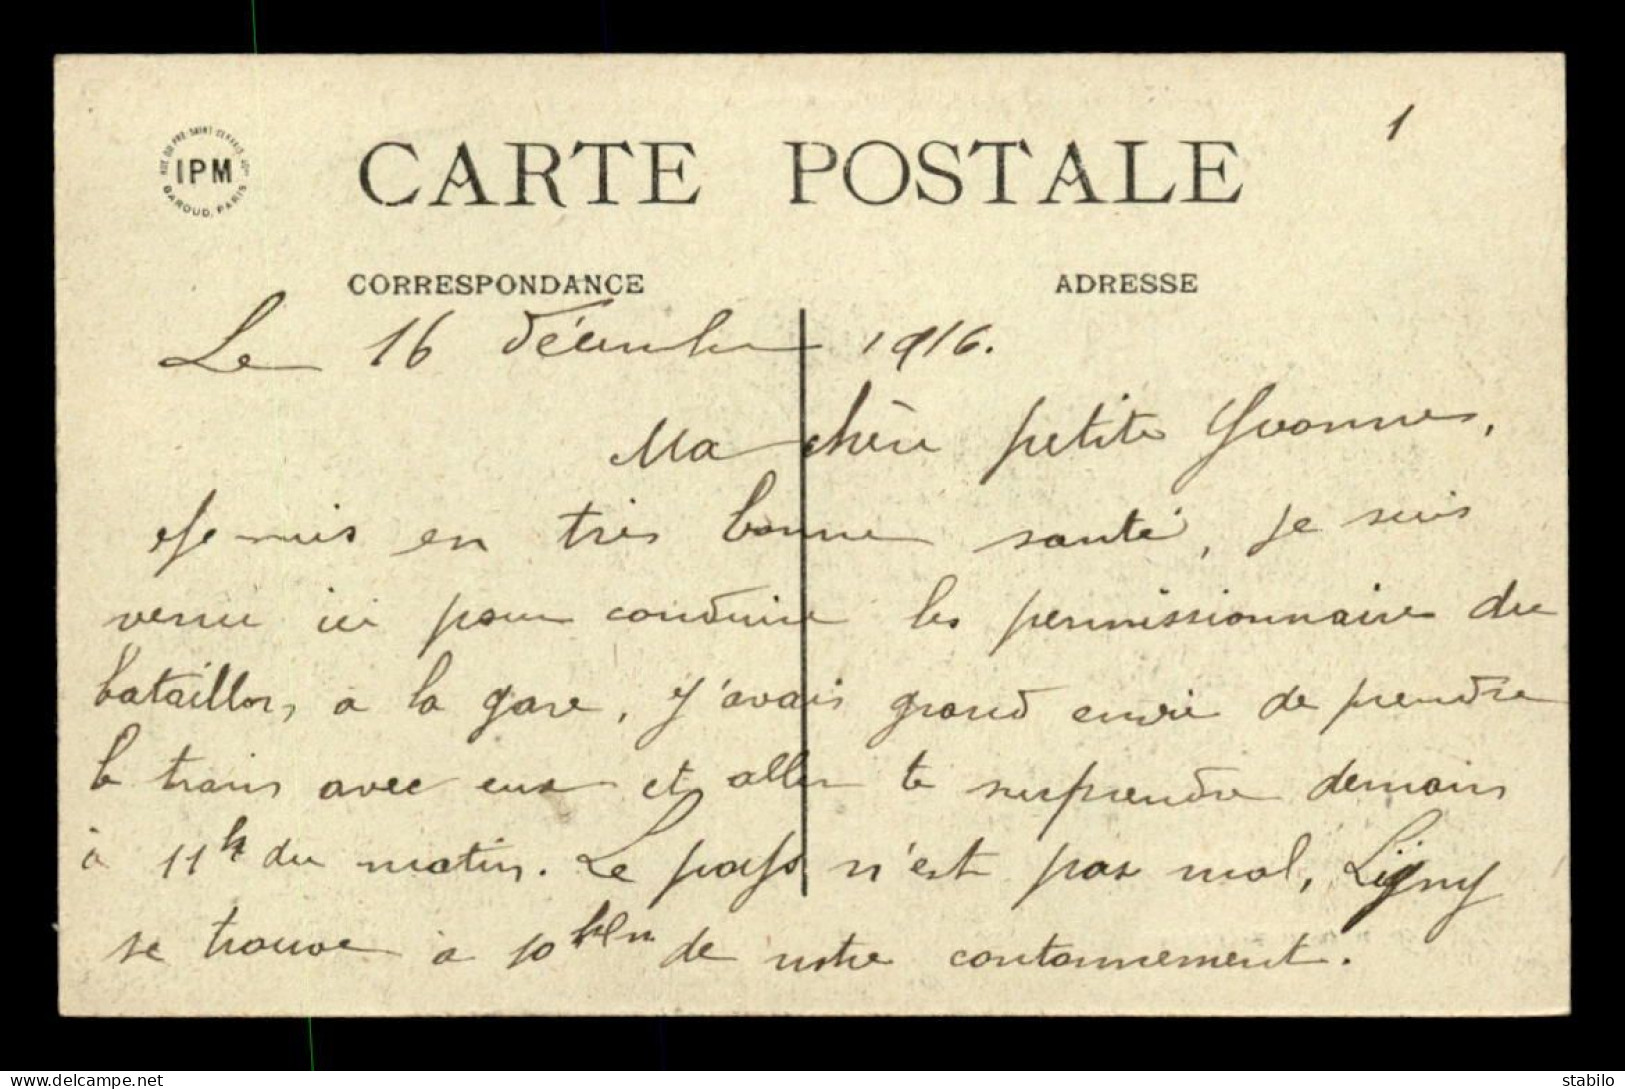 1
RUE DU PRE-SAINT GERVAIS
IPM
BAROUD, PARIS
CARTE POSTALE
CORRESPONDANCE
ADRESSE
Le 16 décembre 1916.
Ma chère petite Yvonne,
Je suis en très bonne santé, je suis
venu ici pour conduire les permissionnaire du
bataillon, a la gare, j'avais grand envie de prendre
le train avec eux et aller te surprendre demain
à 11h du matin. Le pays n'est pas mal, Ligny
se trouve a 10 klm de notre cantonnement.
delcampe.net
stabilo